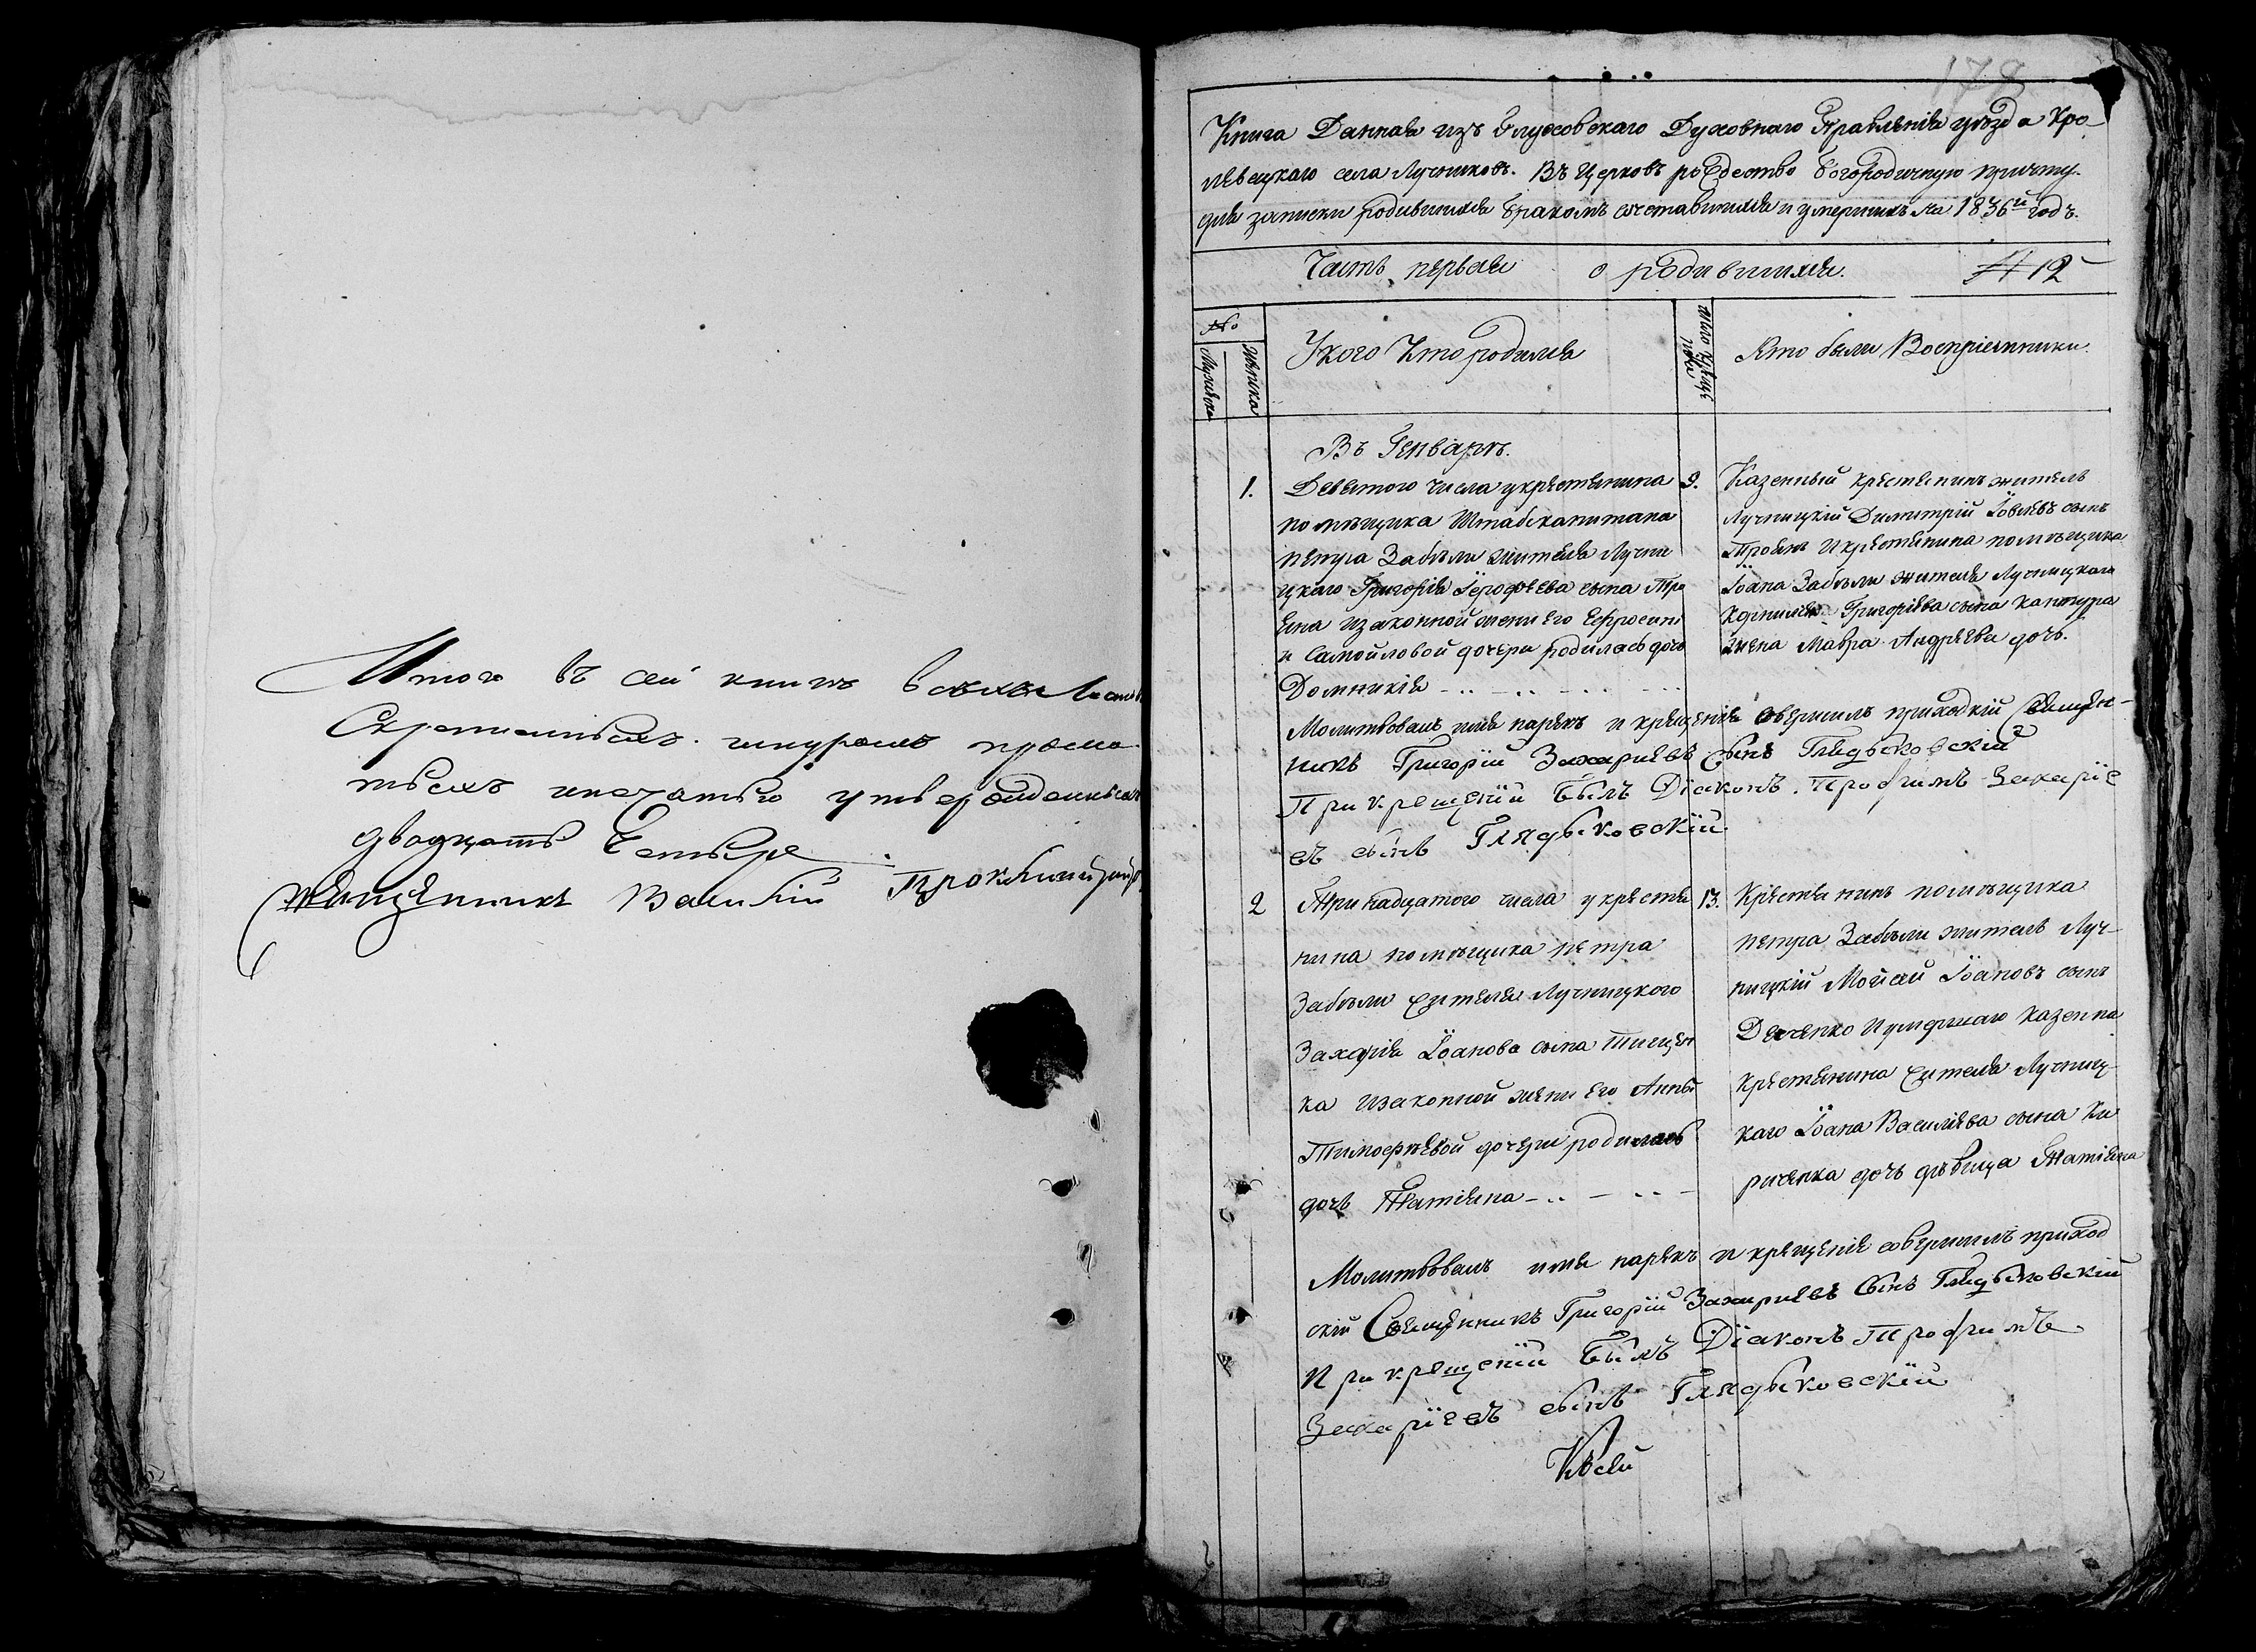 Итого въ сей книгѣ всѣхъ Листов
Скрепленныхъ шнуромъ проема
тыхъ и печатью утвержденныхъ
двадцать Четыре
Священникъ Василій
178
Книга Данная изъ Глуховскаго Духовнаго Правленія уѣзда Кро-
левецкаго села Лучниковъ. Въ Церковь рождество Богородичную причту.
для записки родившихся бракомъ сочетавшихся и умершихъ на 1836й годъ.
Часть первая о родившихся. 12
№
Мужеска
Женска
У кого Кто родился
Число Крещенія
Кто были Воспріемники.
Въ Генварѣ.
1. Девятого числа у крестянина
помѣщика Штабскапитана
петра Забѣли жителя Лучни
цкаго Григорія Іерофѣева сына Тро
яна изаконной жени его Ефросини
и Самойловой дочери родилась дочь
Домникія
9. Казенный крестянинъ житель
Лучницкій Димитрій Іовлевъ сынъ
Троянъ И крестянина помѣщика
Іоана Забѣли жителя Лучницкаго
Корнилія Григоріева сына Кантура
жена Мавра Андрѣева дочь.
Молитвовалъ имя нарекъ и крещеніе совершилъ приходкій Священ-
никъ Григорій Захаріевъ Сынъ Глядыковскій
При крещеніи Былъ Діаконъ Трофимъ Захаріе
въ сынъ Глядыковскій.
2 Тринадцатого числа у крестя
нина помѣщика петра
Забѣли жителя Лучницкого
Захарія Іоанова сына Тищен
ка изаконной жени его Анны
Тимофѣевой дочери родилась
дочь Татіяна
13. Крестянинъ помѣщика
петра Забѣли житель Луч-
ницкій Мойсей Іоановъ сынъ
Деченко И умершаго казенна
крестянина жителя Лучниц-
каго Іоана Василіева сына Ки
риченка дочь дѣвица Татіяна
Молитвовалъ имя нарекъ и крещеніе совершилъ приход
скій Священникъ Григорій Захаріевъ Сынъ Глядыковскій
При крещеніи Былъ Діаконъ Трофимъ
Захаріевъ сынъ Глядыковскій
Къ сей